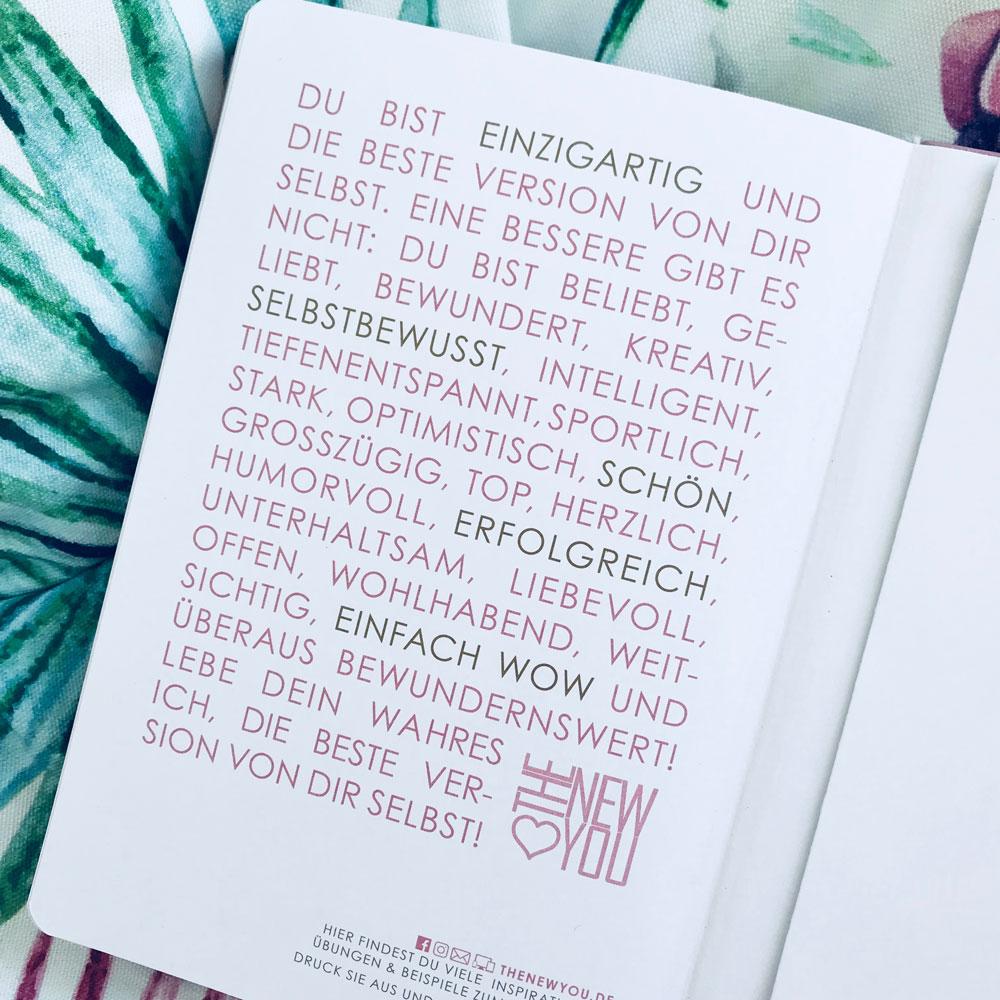 DU BIST EINZIGARTIG UND
DIE BESTE VERSION VON DIR
SELBST. EINE BESSERE GIBT ES
NICHT: DU BIST BELIEBT, GE-
LIEBT, BEWUNDERT, KREATIV,
SELBSTBEWUSST, INTELLIGENT,
TIEFENENTSPANNT, SPORTLICH,
STARK, OPTIMISTISCH, SCHÖN,
GROSSZÜGIG, TOP, HERZLICH,
HUMORVOLL, ERFOLGREICH,
UNTERHALTSAM, LIEBEVOLL,
OFFEN, WOHLHABEND, WEIT-
SICHTIG, EINFACH WOW UND
ÜBERAUS BEWUNDERNSWERT!
LEBE DEIN WAHRES
ICH, DIE BESTE VER-
SION VON DIR SELBST!
THE NEW
YOU
THENEWYOU.DE
HIER FINDEST DU VIELE
ÜBUNGEN & BEISPIELE ZUM
DRUCK SIE AUS UND